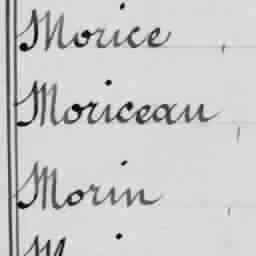 Morice
Moriceau
Morin